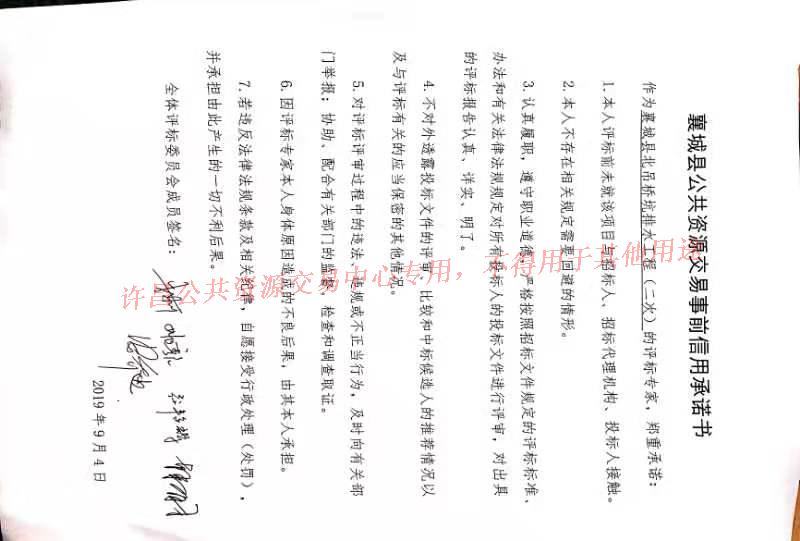 襄城县公共资源交易事前信用承诺书
作为襄城县北吊桥坑排水工程（二次）的评标专家，郑重承诺：
1. 本人评标前未就该项目与招标人、招标代理机构、投标人接触。
2. 本人不存在相关规定需要回避的情形。
3. 认真履职，遵守职业道德，严格按照招标文件规定的评标标准、
办法和有关法律法规规定对所有投标人的投标文件进行评审，对出具
的评标报告认真、详实、明了。
4. 不对外透露投标文件的评审、比较和中标候选人的推荐情况以
及与评标有关的应当保密的其他情况。
5. 对评标评审过程中的违法、违规或不正当行为，及时向有关部
门举报；协助、配合有关部门的监督、检查和调查取证。
6. 因评标专家本人身体原因造成的不良后果，由其本人承担。
7. 若违反法律法规条款及相关纪律，自愿接受行政处理（处罚），
并承担由此产生的一切不利后果。
全体评标委员会成员签名：
2019年9月4日
许昌公共资源交易中心专用，不得用于其他用途